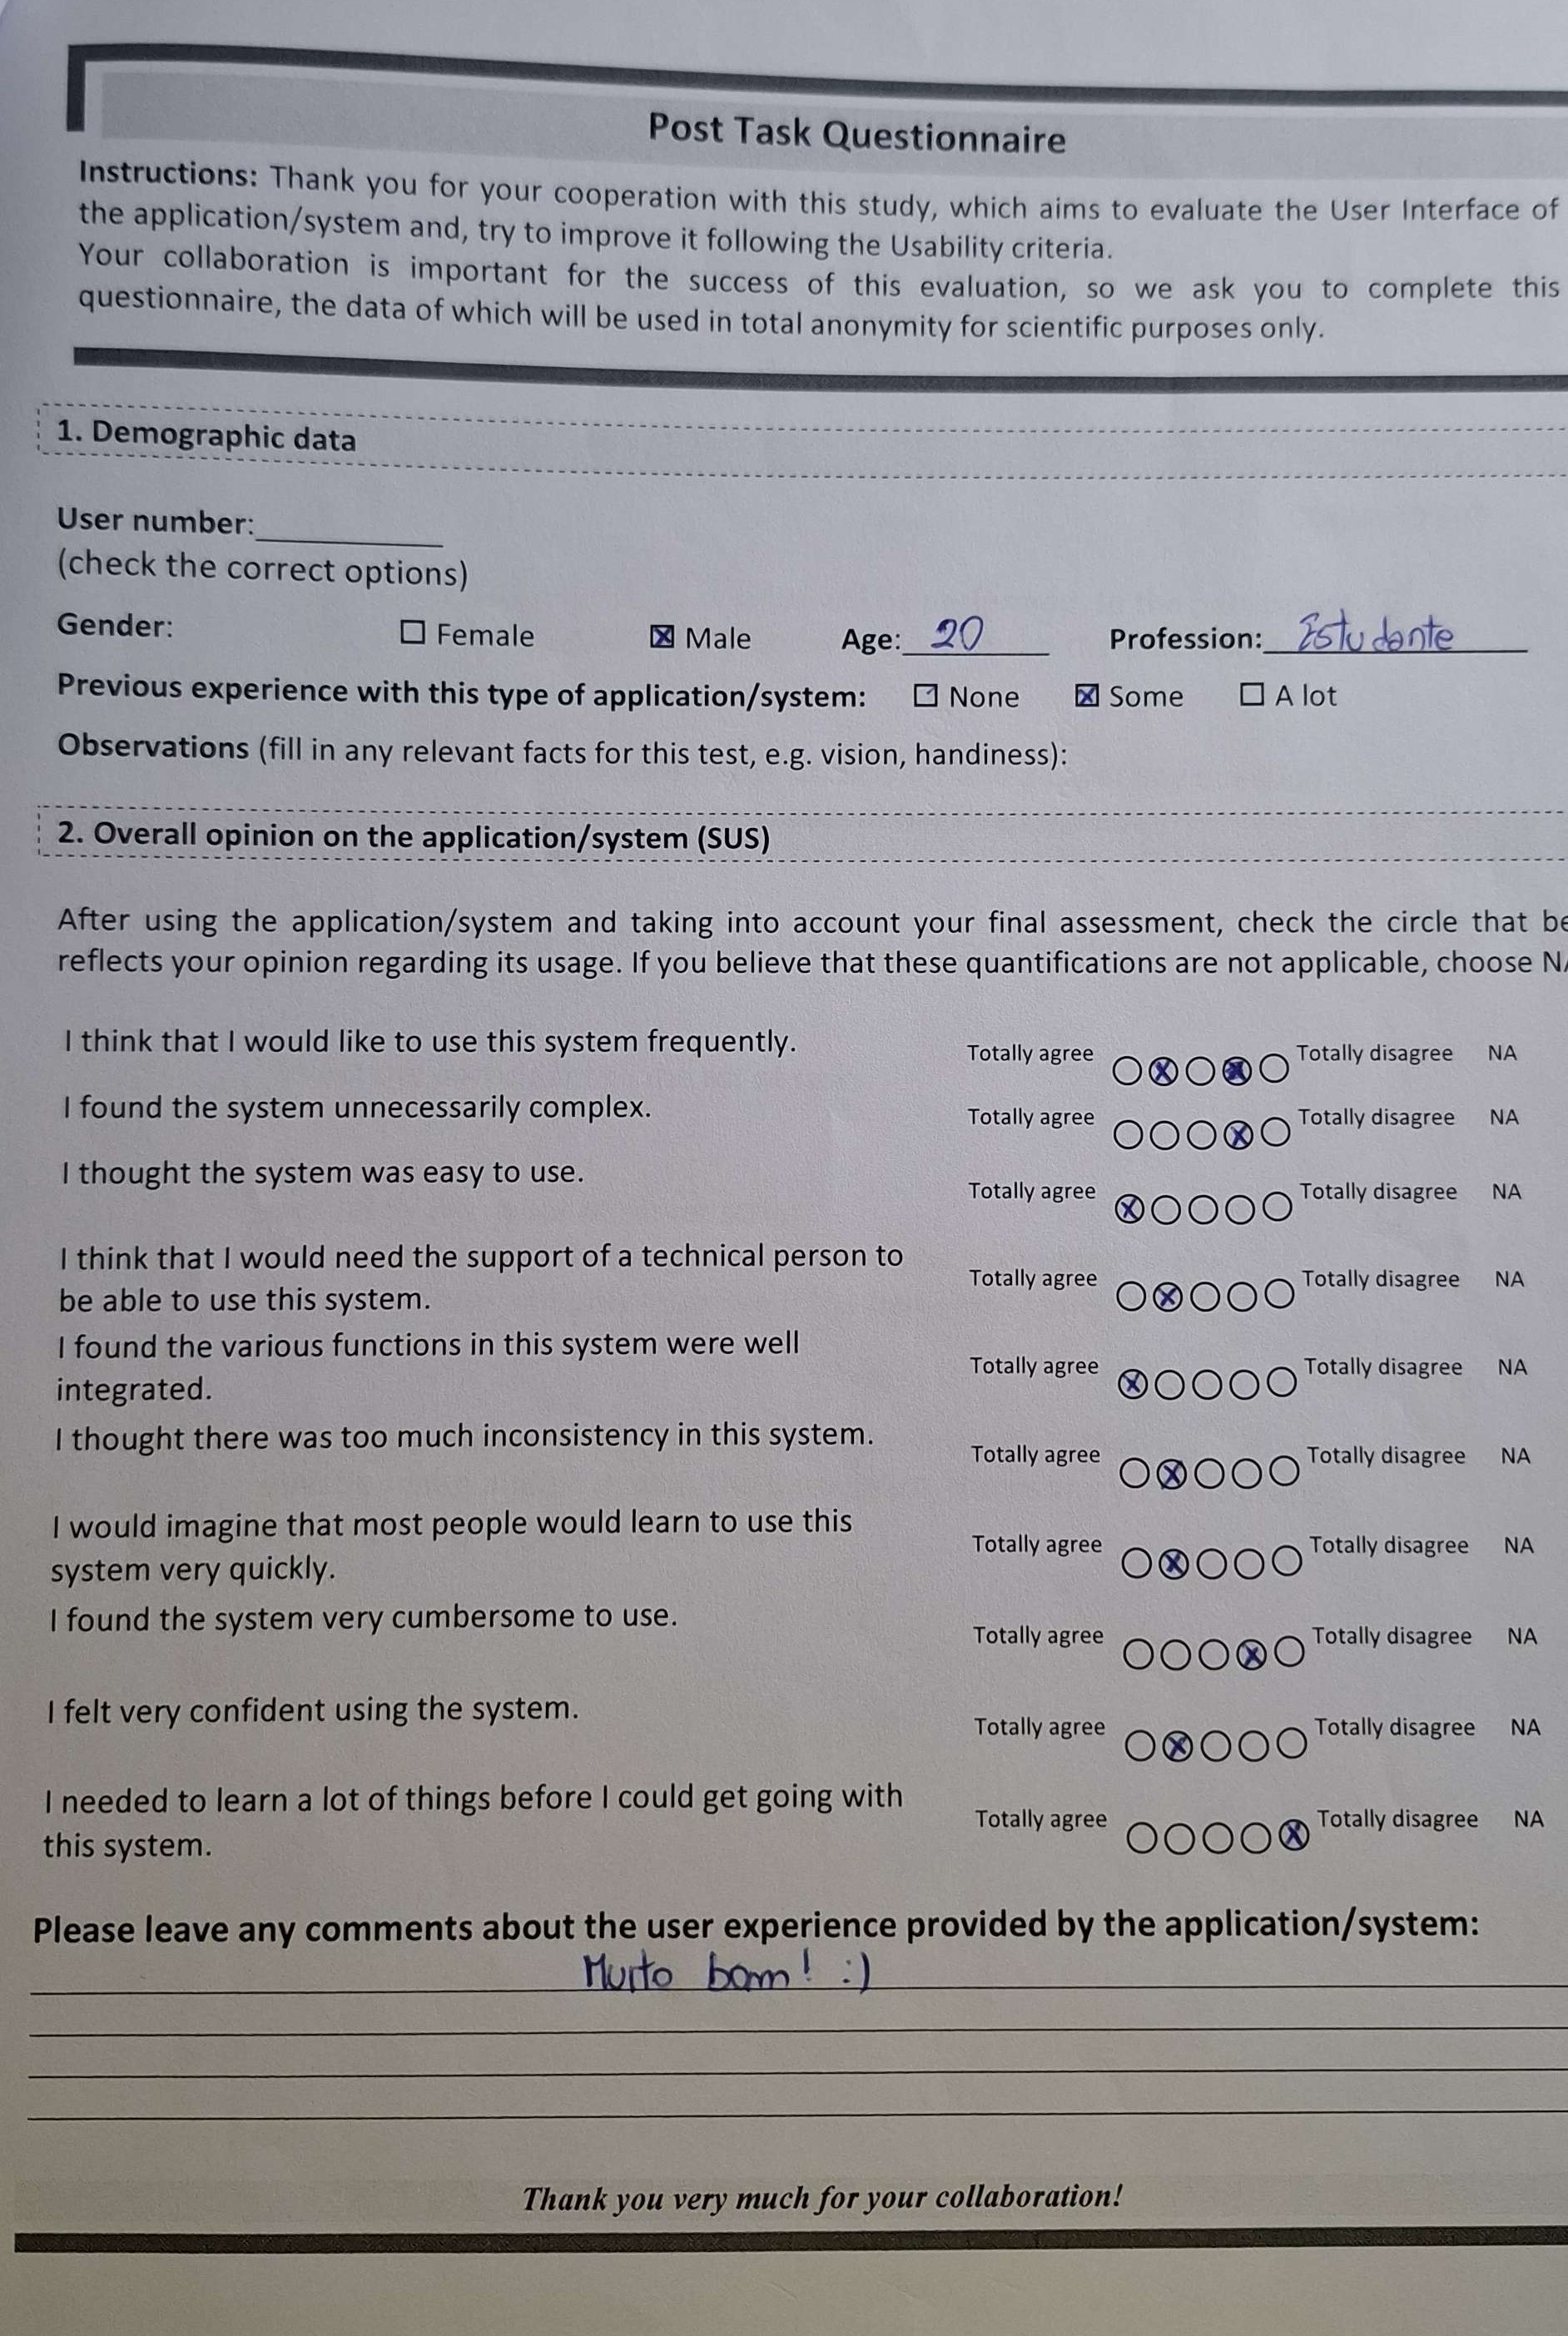 Post Task Questionnaire
Instructions: Thank you for your cooperation with this study, which aims to evaluate the User Interface of
the application/system and, try to improve it following the Usability criteria.
Your collaboration is important for the success of this evaluation, so we ask you to complete this
questionnaire, the data of which will be used in total anonymity for scientific purposes only.
1. Demographic data
User number:
(check the correct options)
Gender: Female Male Age: 20 Profession: Estudante
Previous experience with this type of application/system: None Some A lot
Observations (fill in any relevant facts for this test, e.g. vision, handiness):
2. Overall opinion on the application/system (SUS)
After using the application/system and taking into account your final assessment, check the circle that
reflects your opinion regarding its usage. If you believe that these quantifications are not applicable, choose
I think that I would like to use this system frequently. Totally agree Totally disagree NA
I found the system unnecessarily complex. Totally agree Totally disagree NA
I thought the system was easy to use. Totally agree Totally disagree NA
I think that I would need the support of a technical person to
be able to use this system. Totally agree Totally disagree NA
I found the various functions in this system were well
integrated. Totally agree Totally disagree NA
I thought there was too much inconsistency in this system. Totally agree Totally disagree NA
I would imagine that most people would learn to use this
system very quickly. Totally agree Totally disagree NA
I found the system very cumbersome to use. Totally agree Totally disagree NA
I felt very confident using the system. Totally agree Totally disagree NA
I needed to learn a lot of things before I could get going with
this system. Totally agree Totally disagree NA
Please leave any comments about the user experience provided by the application/system:
Muito bom! :)
Thank you very much for your collaboration!